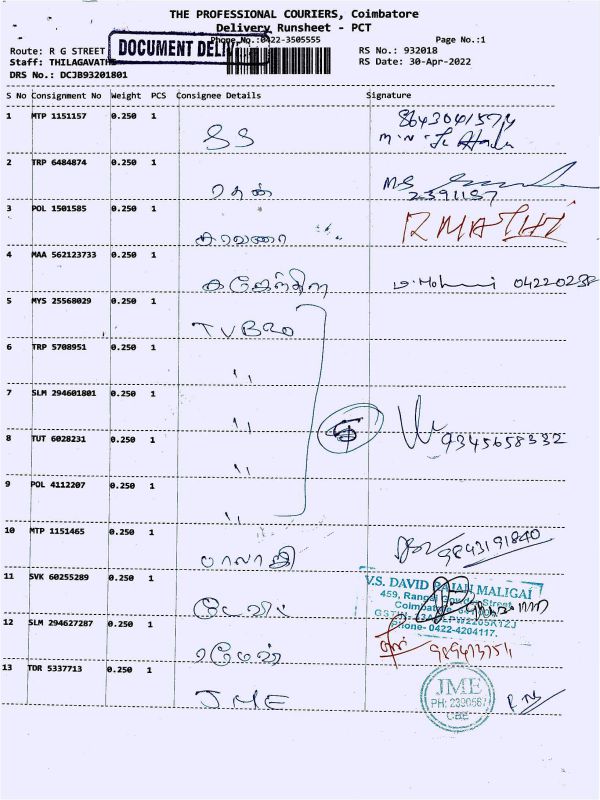 THE PROFESSIONAL COURIERS, Coimbatore
Delivery Runsheet - PCT
Phone No.:0422-3505555 Page No.:1
Route: R G STREET RS No.: 932018
DOCUMENT DELIV
Staff: THILAGAVATHI RS Date: 30-Apr-2022
DRS No.: DCJB93201801
S No Consignment No Weight PCS Consignee Details Signature
1 MTP 1151157 0.250 1
SS
8643041574
2 TRP 6484874 0.250 1
MS
2391157
3 POL 1501585 0.250 1
RMATHI
4 MAA 562123733 0.250 1
04220238
5 MYS 25568029 0.250 1
TVB20
6 TRP 5708951 0.250 1
"
7 SLM 294601801 0.250 1
"
5
9345658332
8 TUT 6028231 0.250 1
"
9 POL 4112207 0.250 1
"
10 MTP 1151465 0.250 1
பாலாஜி
9843191840
11 SVK 60255289 0.250 1
டேவிட்
V.S. DAVID RAJAH MALIGAI
459, Rangai Gowder Street
Coimbatore
Phone- 0422-4204117.
12 SLM 294627287 0.250 1
ரமேஷ்
13 TDR 5337713 0.250 1
JME
JME
PH: 2390567
CBE